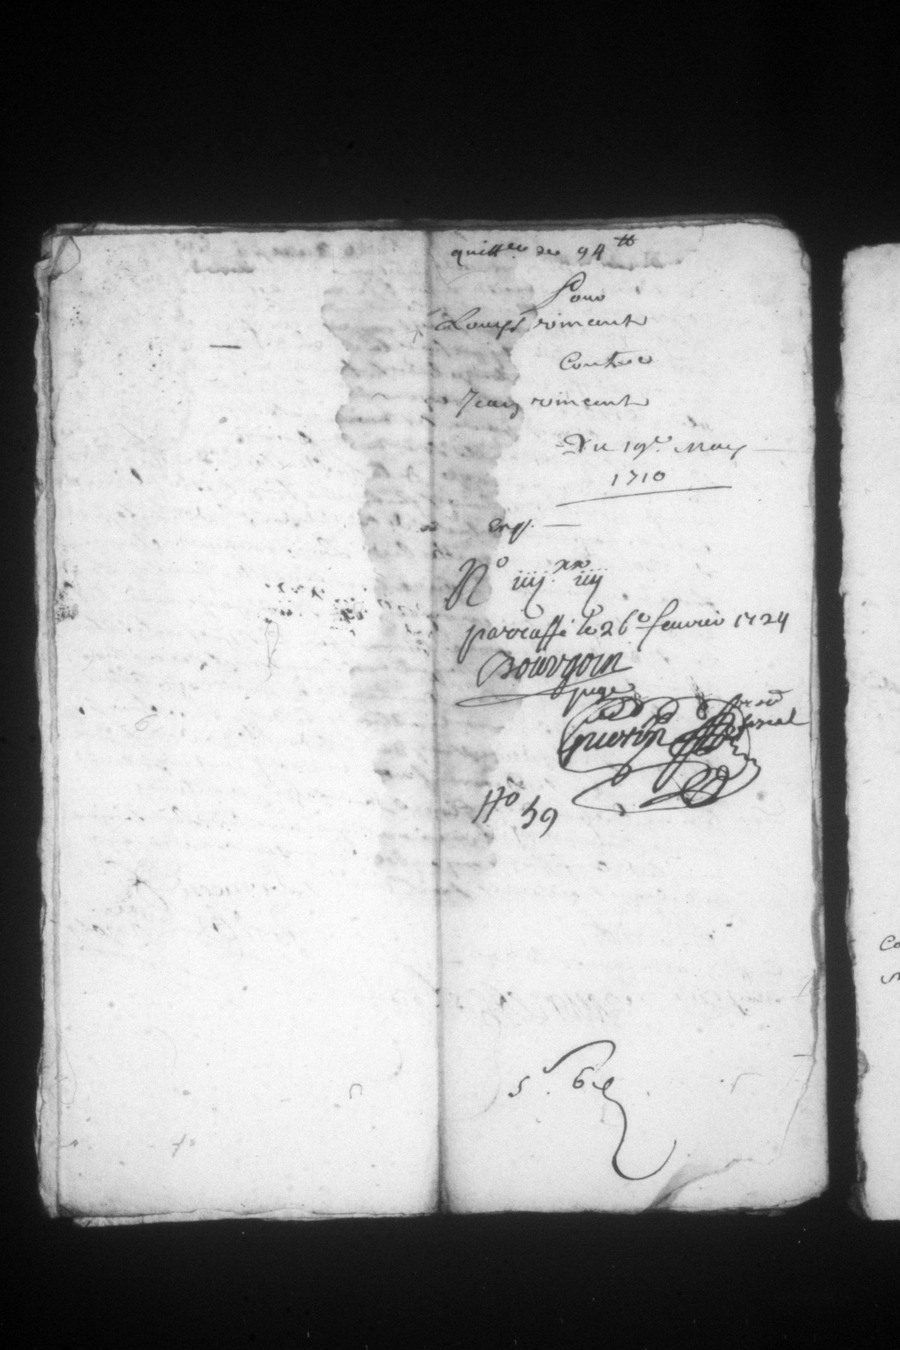 quitt.ce de 94 tt
Pour
Louys vincent
Contre
Jean vincent
Du 19e. May
1710
N° iiij.xx iiij
parraffé le 26e feuvrier 1724
Bourgoin
juge
guerin
fiscal
H° 59
5s. 6d